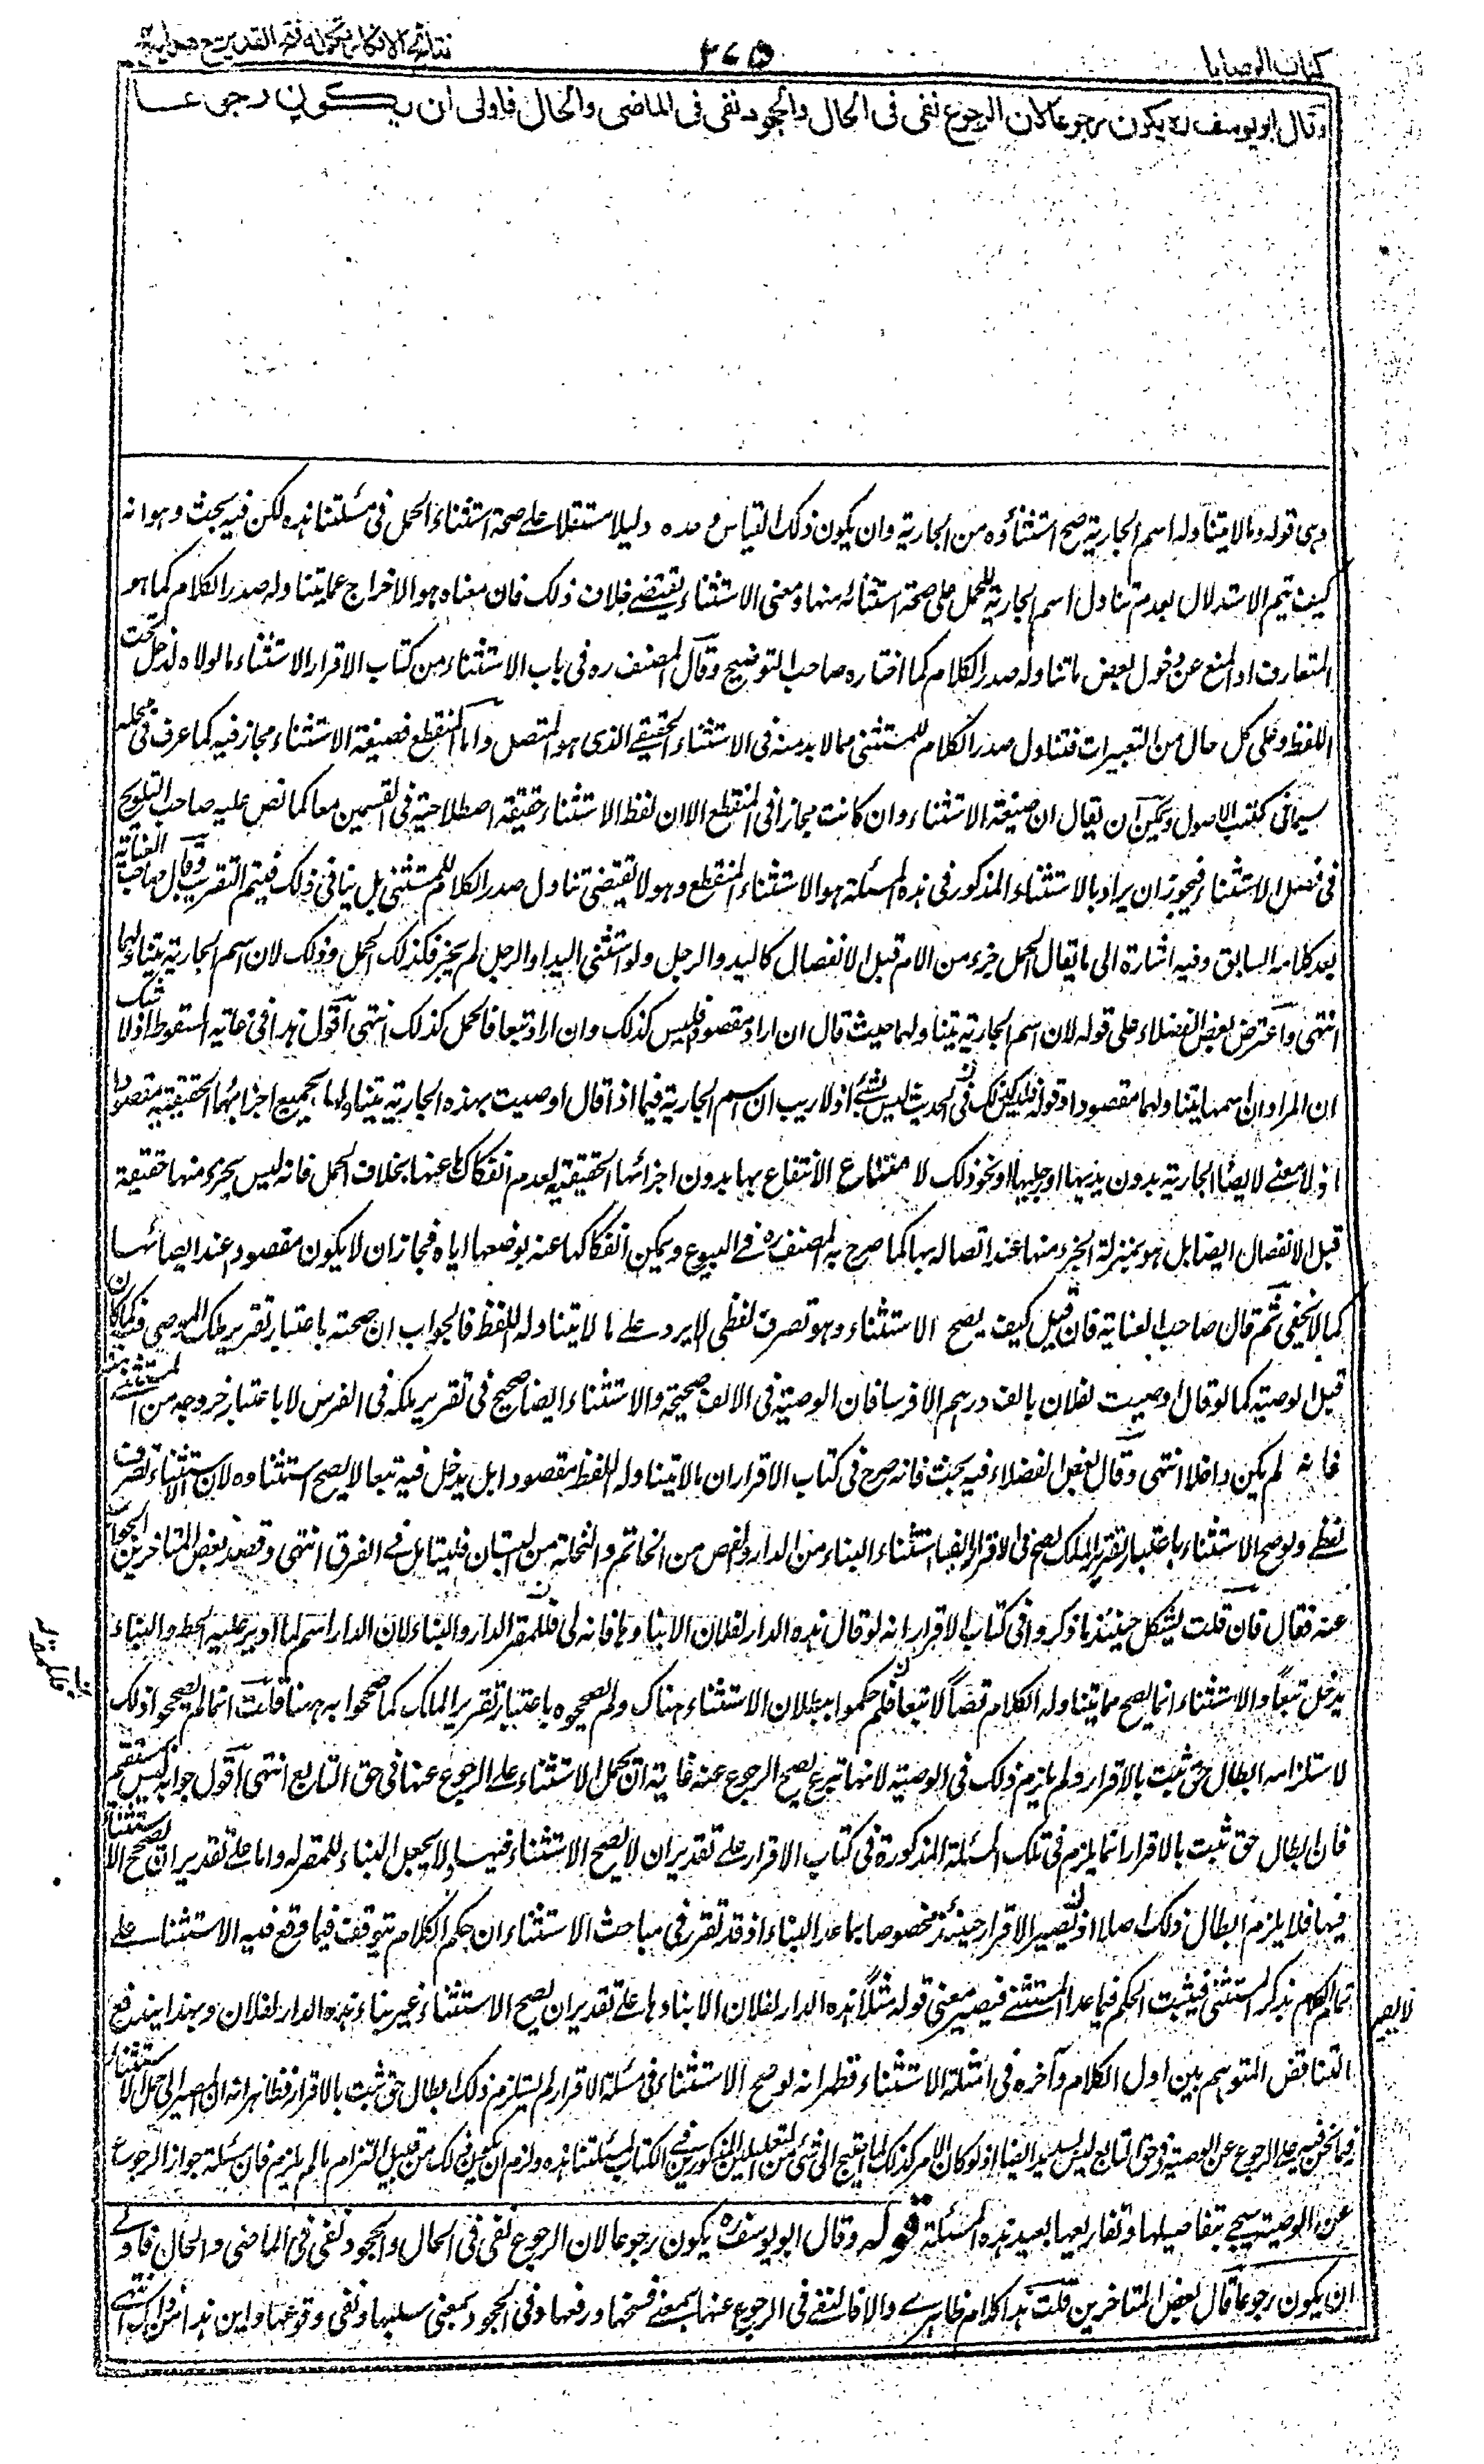 كتاب الوصايا
٣٧٥
نتائج الافكار تكملة فتح القدير مع هداية
وقال ابو يوسف ره يكون رجوعا لان الرجوع نفى فى الحال والجحود نفى فى الماضى والحال فاولى ان يكون رجوعا
وهى قوله ومالا يتناوله اسم الجارية صح استثناؤه من الجارية وان يكون ذلك القياس وحده دليلا مستقلا على صحة استثناء الحمل فى مسئلتنا هذه لكن فيه بحث وهو انه
كيف يتم الاستدلال بعدم تناول اسم الجارية للحمل على صحة استثنائه منها ومعنى الاستثناء يقتضى خلاف ذلك فان معناه هو الاخراج عما يتناوله صدر الكلام كما هو
المتعارف او المنع عن دخول بعض ما تناوله صدر الكلام كما اختاره صاحب التوضيح وقال المصنف ره فى باب الاستثناء من كتاب الاقرار الاستثناء مالولاه لدخل تحت
اللفظ وعلى كل حال من التعبيرات فتناول صدر الكلام للمستثنى مما لا بد منه فى الاستثناء الحقيقى الذى هو المتصل واما المنقطع فصيغة الاستثناء مجاز فيه كما عرف فى محله
سيما فى كتب الاصول ويمكن ان يقال ان صيغة الاستثناء وان كانت مجازا فى المنقطع الا ان لفظ الاستثناء حقيقة اصطلاحية فى القسمين معا كما نص عليه صاحب التلويح
فى فصل الاستثناء فيجوز ان يراد بالاستثناء المذكور فى هذه المسئلة هو الاستثناء المنقطع وهو لا يقتضى تناول صدر الكلام للمستثنى بل ينافى ذلك فيتم التقريب وقال صاحب العناية
بعد كلامه السابق وفيه اشارة الى ما يقال الحمل جزء من الام قبل الانفصال كاليد والرجل ولو استثنى اليد او الرجل لم يجز فكذلك الحمل وذلك لان اسم الجارية يتناولهما
انتهى واعترض بعض الفضلاء على قوله لان اسم الجارية يتناولهما حيث قال ان اراد مقصودا فليس كذلك وان اراد تبعا فالحمل كذلك انتهى اقول هذا فى غاية السقوط اذ لا شك
ان المراد ان اسمها يتناولهما مقصودا وقوله فليس كذلك فى الحديث ليس بشئ اذ لا ريب ان اسم الجارية فيما اذا قال اوصيت بهذه الجارية يتناولها بجميع اجزائها الحقيقية مقصودا
اذ لا معنى لايصاء الجارية بدون يديها او رجليها او نحو ذلك لامتناع الانتفاع بها بدون اجزائها الحقيقية لعدم انفكاكها عنها بخلاف الحمل فانه ليس بجزء منها حقيقة
قبل الانفصال ايضا بل هو بمنزلة الجزء منها عند اتصاله بها كما صرح به المصنف ره فى البيوع ويمكن انفكاكها عنه بوضعها اياه فجاز ان لا يكون مقصودا عند ايصائها
كما لا يخفى ثم قال صاحب العناية فان قيل كيف يصح الاستثناء وهو تصرف لفظى لا يرد على ما لا يتناوله اللفظ فالجواب ان صحته باعتبار تقرير ملك الموصى فيه كما كان
قبل الوصية كما لو قال اوصيت لفلان بالف درهم الا فرسا فان الوصية فى الالف صحيحة والاستثناء ايضا صحيح فى تقرير ملكه فى الفرس لا باعتبار خروجه من المستثنى منه
فانه لم يكن داخلا انتهى وقال بعض الفضلاء فيه بحث فانه صرح فى كتاب الاقرار ان مالا يتناوله اللفظ مقصودا بل يدخل فيه تبعا لا يصح استثناوه لان الاستثناء تصرف
لفظى ولو صح الاستثناء باعتبار تقرير الملك لصح فى الاقرار ايضا استثناء البناء من الدار والفص من الخاتم والنخلة من البستان فليتامل فى الفرق انتهى وقصد بعض المتاخرين الجواب
عنه فقال فان قلت يشكل حينئذ ما ذكروا فى كتاب الاقرار انه لو قال هذه الدار لفلان الا بناءها فانه لى فللمقر له الدار والبناء لان الدار اسم لما ادير عليه الحائط والبناء
يدخل تبعاً والاستثناء انما يصح مما يتناوله الكلام قصداً لا تبعا فلم حكموا ببطلان الاستثناء هناك ولم يصححوه باعتبار تقرير الملك كما صححوا به ههنا قلت انما لم يصححوا ذلك
لاستلزامه ابطال حق ثبت بالاقرار ولم يلزم ذلك فى الوصية لانها تبرع يصح الرجوع عنه غاية ان يحمل الاستثناء على الرجوع عنها فى حق التابع انتهى اقول جوابه ليس بمستقيم
فان ابطال حق ثبت بالاقرار انما يلزم فى تلك المسئلة المذكورة فى كتاب الاقرار على تقدير ان لا يصح الاستثناء فيها ولا يجعل البناء للمقر له واما على تقدير ان يصح الاستثناء
فيها فلا يلزم ابطال ذلك اصلا اذ يصير الاقرار حينئذ مخصوصا بما عدا البناء اذ قد تقرر فى مباحث الاستثناء ان حكم الكلام يتوقف فيما وقع فيه الاستثناء على
تمام الكلام بذكر المستثنى فيثبت الحكم فيما عدا المستثنى فيصير معنى قوله مثلاً هذه الدار لفلان الا بناءها على تقدير ان يصح الاستثناء غير بناء هذه الدار لفلان وبهذا يندفع
التناقض المتوهم بين اول الكلام وآخره فى امثلة الاستثناء فظهر انه لو صح الاستثناء فى مسئلة الاقرار لم يستلزم ذلك ابطال حق ثبت بالاقرار فظاهر انه ان المصير الى حمل الاستثناء
فيما نحن فيه على الرجوع عن الوصية فى حق التابع ليس بسديد ايضا اذ لو كان الامر كذلك لما احتيج الى شئ من التعليلين المذكورين فى الكتاب لمسئلتنا هذه ولزم ان يكون ذلك من قبيل التزام مالم يلزم فان مسئلة جواز الرجوع
عن الوصية سيجئ بتفاصيلها وتفاريعها بعيد هذه المسئلة قوله وقال ابو يوسف ره يكون رجوعا لان الرجوع نفى فى الحال والجحود نفى فى الماضى والحال فاولى
ان يكون رجوعا قال بعض المتاخرين قلت هذا كلام ظاهرى والا فالنفى فى الرجوع عنها بمعنى فسخها ورفعها وفى الجحود بمعنى سلبها ونفى وقوعها واين هذا من ذاك انتهى